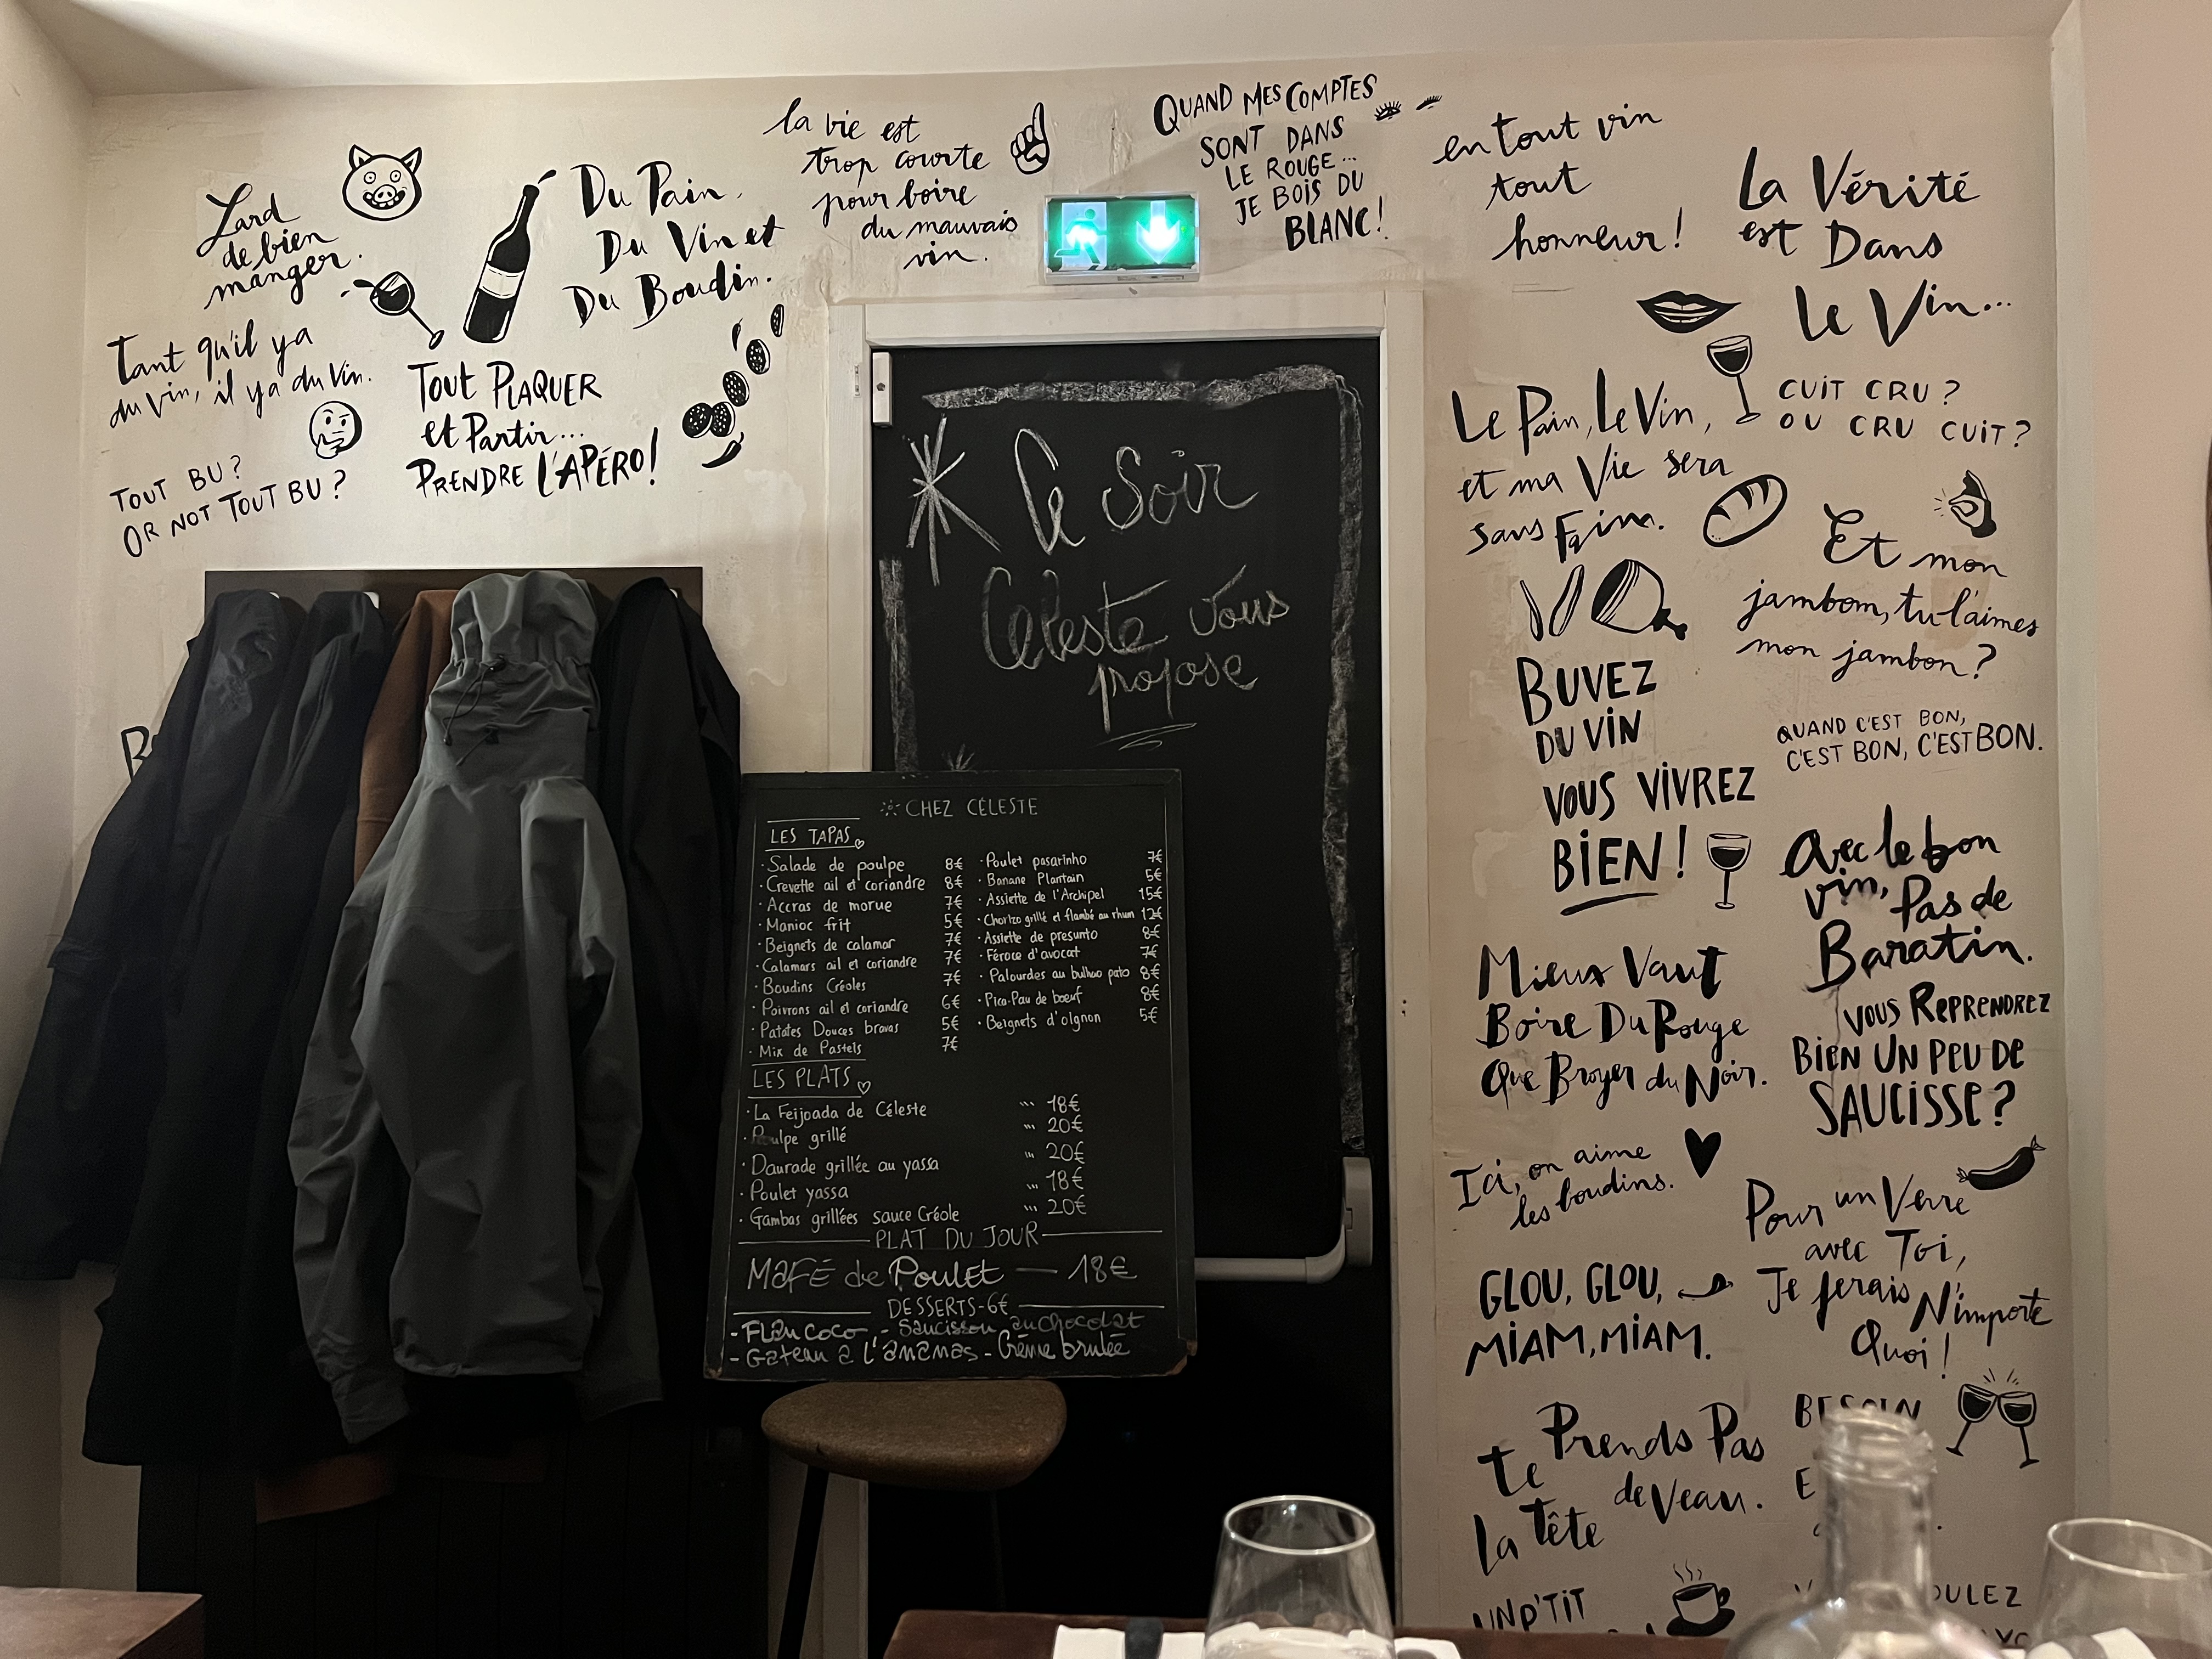 Lard
de bien
manger.
Du Pain,
Du Vin et
Du Boudin.
la vie est
trop courte
pour boire
du mauvais
vin.
QUAND MES COMPTES
SONT DANS
LE ROUGE...
JE BOIS DU
BLANC!
en tout vin
tout
honneur!
La Vérité
est Dans
Le Vin...
Tant qu'il y a
du vin, il y a du vin.
TOUT BU?
OR NOT TOUT BU?
TOUT PLAQUER
et Partir...
PRENDRE L'APÉRO!
Le Pain, Le Vin,
et ma Vie sera
sans Faim.
CUIT CRU?
OU CRU CUIT?
Et mon
jambon, tu l'aimes
mon jambon?
BUVEZ
DU VIN
VOUS VIVREZ
BIEN!
QUAND C'EST BON,
C'EST BON, C'EST BON.
Avec le bon
vin, Pas de
Baratin.
Mieux Vaut
Boire Du Rouge
Que Broyer du Noir.
VOUS REPRENDREZ
BIEN UN PEU DE
SAUCISSE?
Ici, on aime
les boudins.
Pour un Verre
avec Toi,
Je ferais N'importe
Quoi!
GLOU, GLOU,
MIAM, MIAM.
te Prends Pas
La Tête de Veau.
BESOIN
UN P'TIT
Ce Soir
Celeste vous
propose
CHEZ CÉLESTE
LES TAPAS
· Salade de poulpe 8€
· Crevette ail et coriandre 8€
· Accras de morue 7€
· Manioc frit 5€
· Beignets de calamar 7€
· Calamars ail et coriandre 7€
· Boudins Créoles 7€
· Poivrons ail et coriandre 6€
· Patates Douces bravas 5€
· Mix de Pastels 7€
· Poulet pasarinho 7€
· Banane Plantain 5€
· Assiette de l'Archipel 15€
· Chorizo grillé et flambé au rhum 12€
· Assiette de presunto 8€
· Féroce d'avocat 7€
· Palourdes au bulhao pato 8€
· Pica-Pau de bœuf 8€
· Beignets d'oignon 5€
LES PLATS
· La Feijoada de Céleste ... 18€
· Poulpe grillé ... 20€
· Daurade grillée au yassa ... 20€
· Poulet yassa ... 18€
· Gambas grillées sauce Créole ... 20€
PLAT DU JOUR
MAFÉ de Poulet — 18€
DESSERTS-6€
- Flan coco - Saucisson au chocolat
- Gateau a l'ananas - Crème brulée